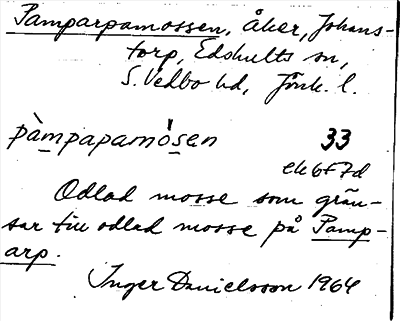 Pamparpamossen, Åker, Johans-
torp, Edshults sn,
S. Vedbo hd, Jönk. l.
pàmpapamo̍sen 33
ek 6f7d
Odlad mosse som grän-
sar till odlad mosse på Pamp-
arp.
Inger Danielsson 1964